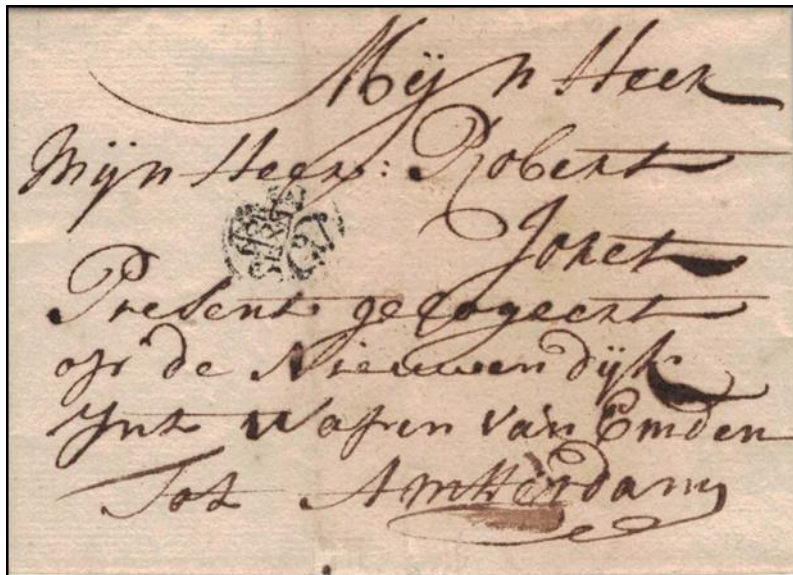 Mijn Heer
Mijn Heer: Robert
Joret
Present gelogeert
op de Nieuwendijk
ynt Wapen van Emden
Tot Amsterdam